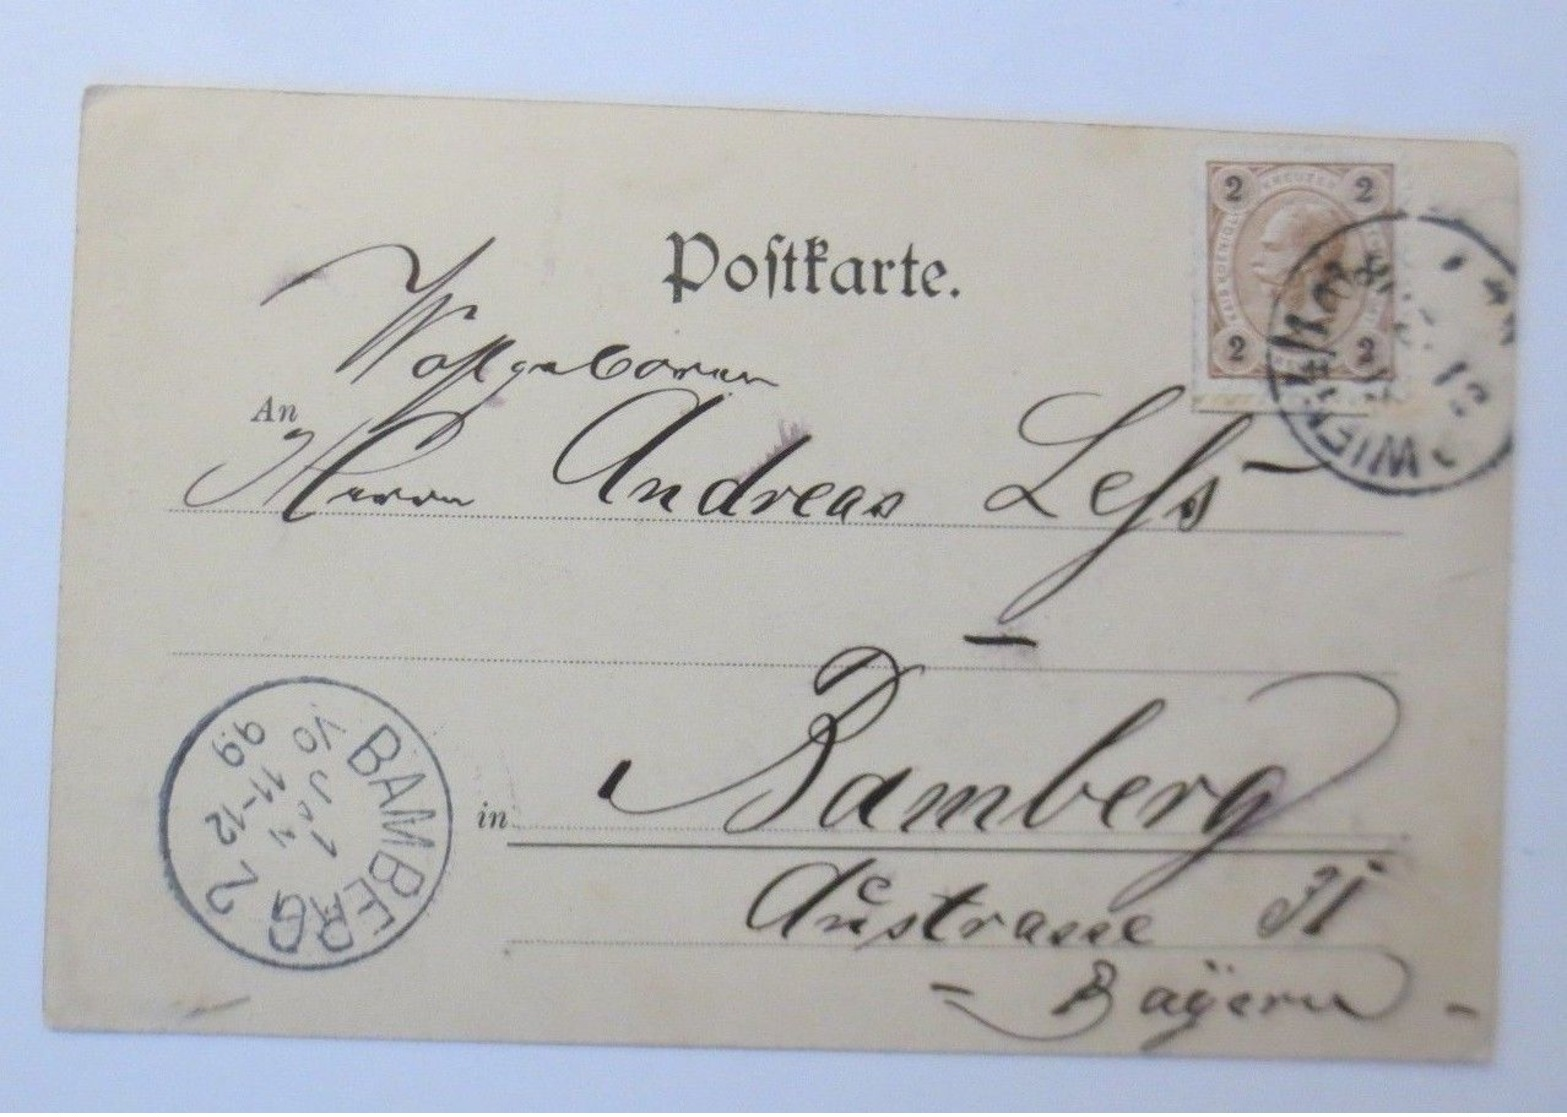 Postkarte.
2 KREUZER 2
2 2
WIEN
Wohlgeboren
An
Herrn Andreas Less
in Bamberg
Austrasse 31
- Bayern -
BAMBERG 2
1 Jan
11-12
99